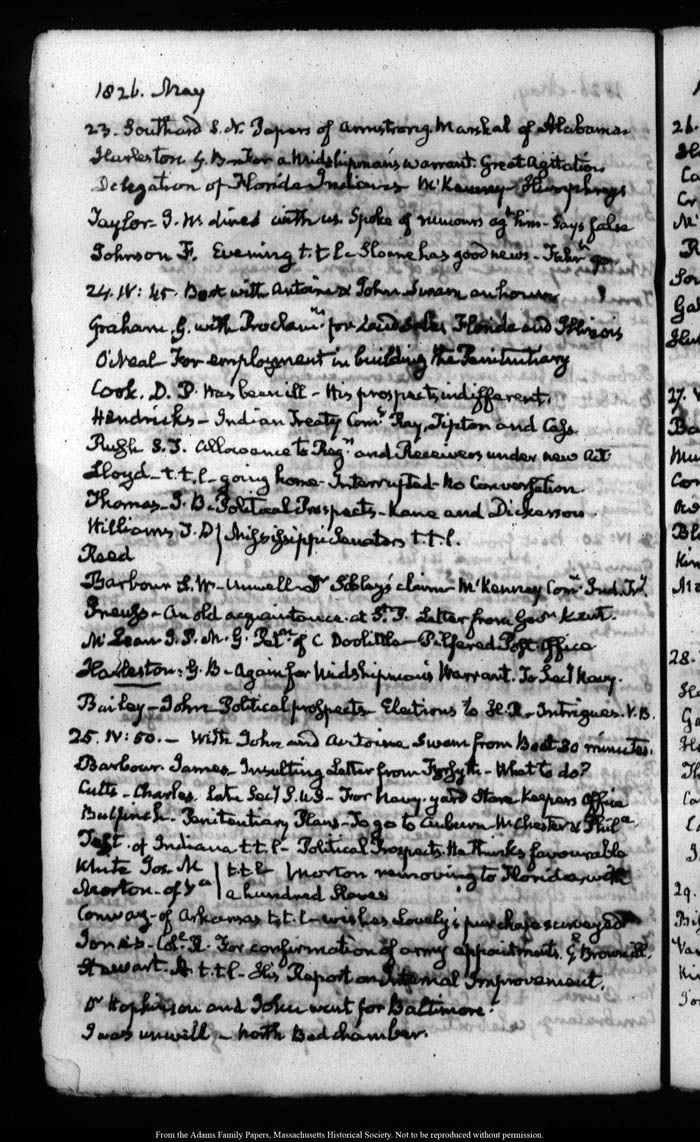 1826. May
23. Southard S.N. Papers of Armstrong Marshal of Alabama
Harleston. G. B. for a Midshipman's warrant. Great Agitation
Delegation of Florida Indians McKenney Humphreys
Taylor. J. W. dined with us. Spoke of rumours agt him - Says false
Johnson F. Evening t.t.l. Sloane has good news -
24. IV: 45. Boat with Antoine & John Swam an hour
Graham. G. with Proclamns for Land Sales Florida and Illinois
O'Neal For employment in building the Penitentiary
Cook. D. P. Has been ill - His prospects indifferent.
Hendricks - Indian Treaty Comrs Ray, Tipton and Cass
Rush S.T. Allowance to Regrs and Receivers under new Act
Lloyd - t.t.l - going home - Interrupted - No Conversation
Thomas - J. B. Political Prospects - Kane and Dickerson
Williams T. } Mississippi Senators t.t.l.
Reed
Barbour S.W. - Unwell - Dr Sibley's claim - McKenney Comr Ind. Try.
Preuss - An old acquaintance at St. P. Letter from Govr Kent.
McLean J. P.M.G. of C Doolittle - Pilfered Post Office
Harleston. G. B. Again for Midshipman's Warrant. To Secy Navy.
Bailey - John Political prospects - Elections to H.R. - Intrigues. V.B.
25. IV: 50. - With John and Antoine Swam from Boat 30 minutes.
Barbour. James - Insulting Letter from Forsyth - What to do?
Cutts - Charles. Late Secy S.U.S - For Navy-yard Store Keepers Office
Bulfinch - Penitentiary Plans - To go to Auburn & Phila
Test. of Indiana t.t.l - Political Prospects. He thinks favourable
White Jos. M } t.t.l. Morton removing to Florida with
Morton - of Va } a hundred Slaves
Conway - of Arkansas t.t.l - wishes Lovely's purchase surveyed
Jones - Coll R. For confirmation of army appointments. Gl Brown ill.
Stewart. A. t.t.l - His Report on Internal Improvement.
Dr Hopkinson and John went for Baltimore.
I was unwell - North Bedchamber.
From the Adams Family Papers, Massachusetts Historical Society. Not to be reproduced without permission.